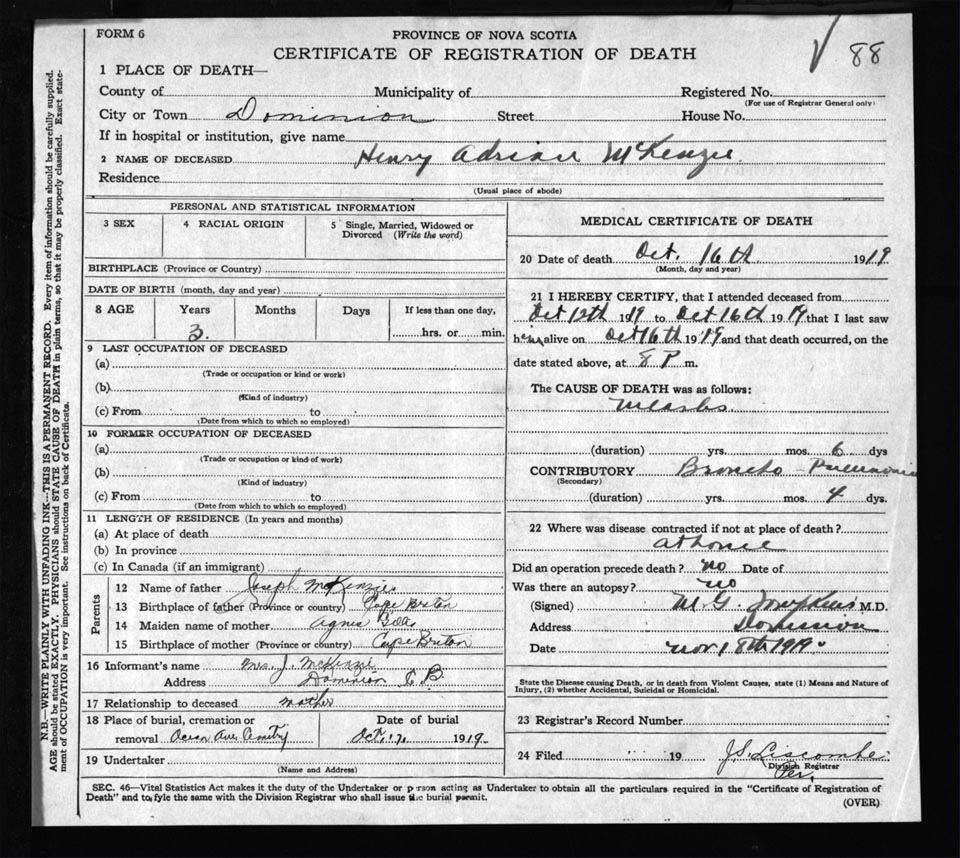 FORM 6
PROVINCE OF NOVA SCOTIA
CERTIFICATE OF REGISTRATION OF DEATH
88
1 PLACE OF DEATH—
County of Municipality of Registered No.
(For use of Registrar General only)
City or Town Dominion Street House No.
If in hospital or institution, give name
2 NAME OF DECEASED Henry Adrian McKenzie
Residence
(Usual place of abode)
PERSONAL AND STATISTICAL INFORMATION
3 SEX 4 RACIAL ORIGIN 5 Single, Married, Widowed or
Divorced (Write the word)
BIRTHPLACE (Province or Country)
DATE OF BIRTH (month, day and year)
8 AGE Years Months Days If less than one day,
3 hrs. or min.
9 LAST OCCUPATION OF DECEASED
(a)
(Trade or occupation or kind or work)
(b)
(Kind of industry)
(c) From to
(Date from which to which so employed)
10 FORMER OCCUPATION OF DECEASED
(a)
(Trade or occupation or kind of work)
(b)
(Kind of industry)
(c) From to
(Date from which to which so employed)
11 LENGTH OF RESIDENCE (In years and months)
(a) At place of death
(b) In province
(c) In Canada (if an immigrant)
Parents
12 Name of father Joseph McKenzie
13 Birthplace of father (Province or country) Cape Breton
14 Maiden name of mother Agnes
15 Birthplace of mother (Province or country) Cape Breton
16 Informant's name Mrs. J. McKenzie
Address Dominion C B
17 Relationship to deceased mother
18 Place of burial, cremation or Date of burial
removal Ocean Ave Cmetry Oct. 17 1919
19 Undertaker
(Name and Address)
MEDICAL CERTIFICATE OF DEATH
20 Date of death Oct. 16th 1919
(Month, day and year)
21 I HEREBY CERTIFY, that I attended deceased from
Oct 12th 1919 to Oct 16th 1919 that I last saw
him alive on Oct 16th 1919 and that death occurred, on the
date stated above, at 8 P m.
The CAUSE OF DEATH was as follows:
Measles
(duration) yrs. mos. 6 dys
CONTRIBUTORY Broncho Pneumonia
(Secondary)
(duration) yrs. mos. 4 dys.
22 Where was disease contracted if not at place of death?
at home
Did an operation precede death? no Date of
Was there an autopsy? no
(Signed) M. G. Tompkins M.D.
Address Dominion
Date Nov 18th 1919
State the Disease causing Death, or in death from Violent Causes, state (1) Means and Nature of
Injury, (2) whether Accidental, Suicidal or Homicidal.
23 Registrar's Record Number
24 Filed 19 J.S. Liscombe
Division Registrar
Per.
SEC. 46—Vital Statistics Act makes it the duty of the Undertaker or person acting as Undertaker to obtain all the particulars required in the "Certificate of Registration of
Death" and to fyle the same with the Division Registrar who shall issue the burial permit.
(OVER)
N.B.—WRITE PLAINLY WITH UNFADING INK—THIS IS A PERMANENT RECORD. Every item of information should be carefully supplied.
AGE should be stated EXACTLY. PHYSICIANS should STATE CAUSE OF DEATH in plain terms, so that it may be properly classified. Exact state-
ment of OCCUPATION is very important. See instructions on back of Certificate.